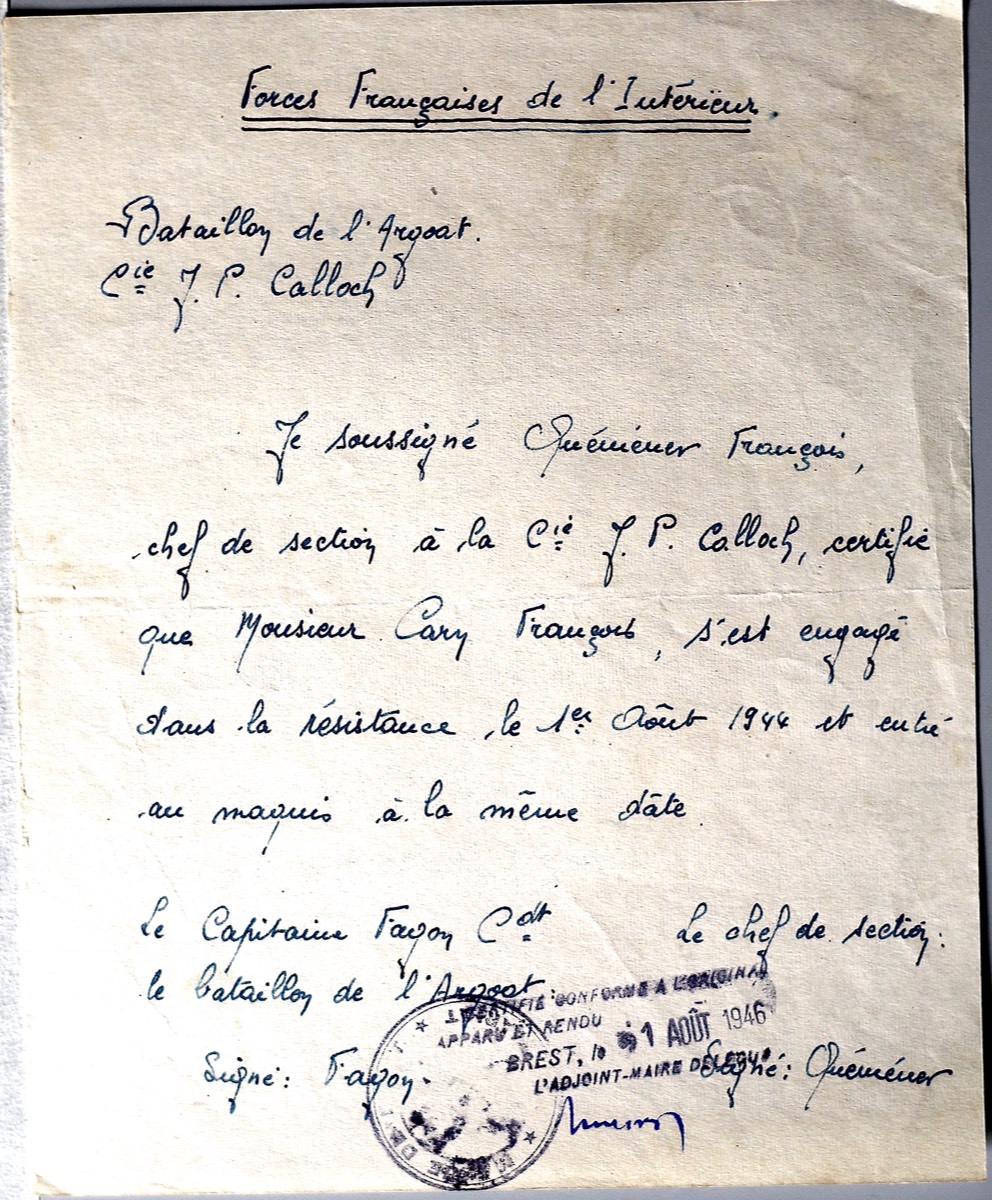 Forces Françaises de l'Intérieur.
Bataillon de l'Argoat.
Cie J. P. Calloch
Je soussigné Quéméner François,
chef de section à la Cie J. P. Calloch, certifie
que Monsieur Cary François, s'est engagé
dans la résistance le 1er Août 1944 et entré
au maquis à la même dâte
Le Capitaine Fagon Cdt
le bataillon de l'Argoat:
Signé: Fagon.
Le chef de section:
Signé: Quéméner
CERTIFIÉ CONFORME A L'ORIGINAL
APPARU ET RENDU
BREST, le 31 AOÛT 1946
L'ADJOINT-MAIRE DÉLÉGUÉ
MAIRIE DE